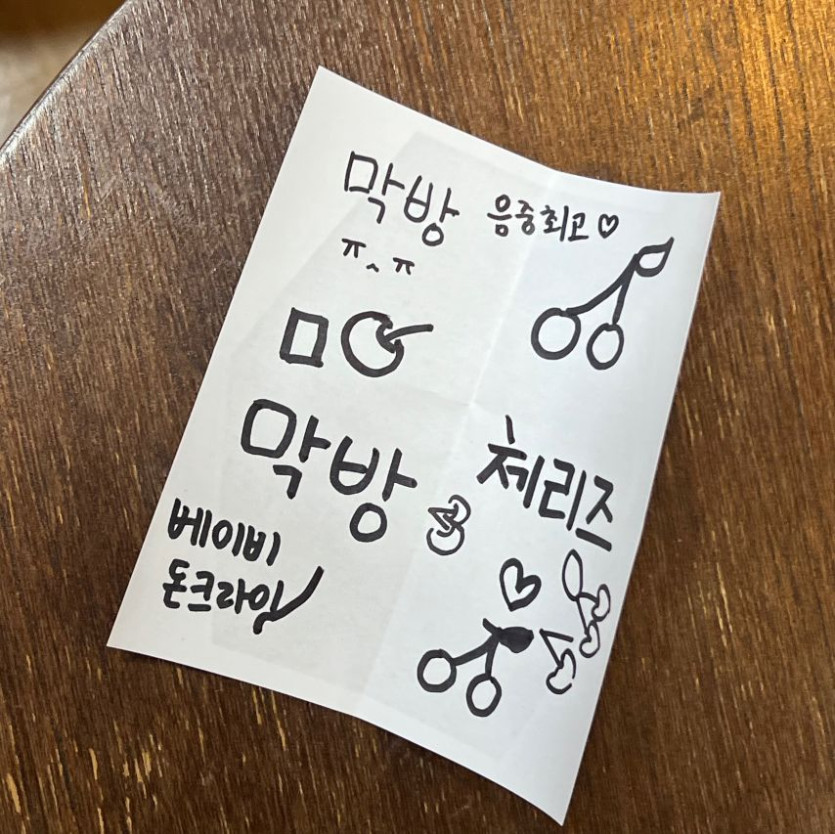 막방 음중최고♡
ㅠ^ㅠ
ㅁㅇ
막방
체리즈
베이비
돈크라이